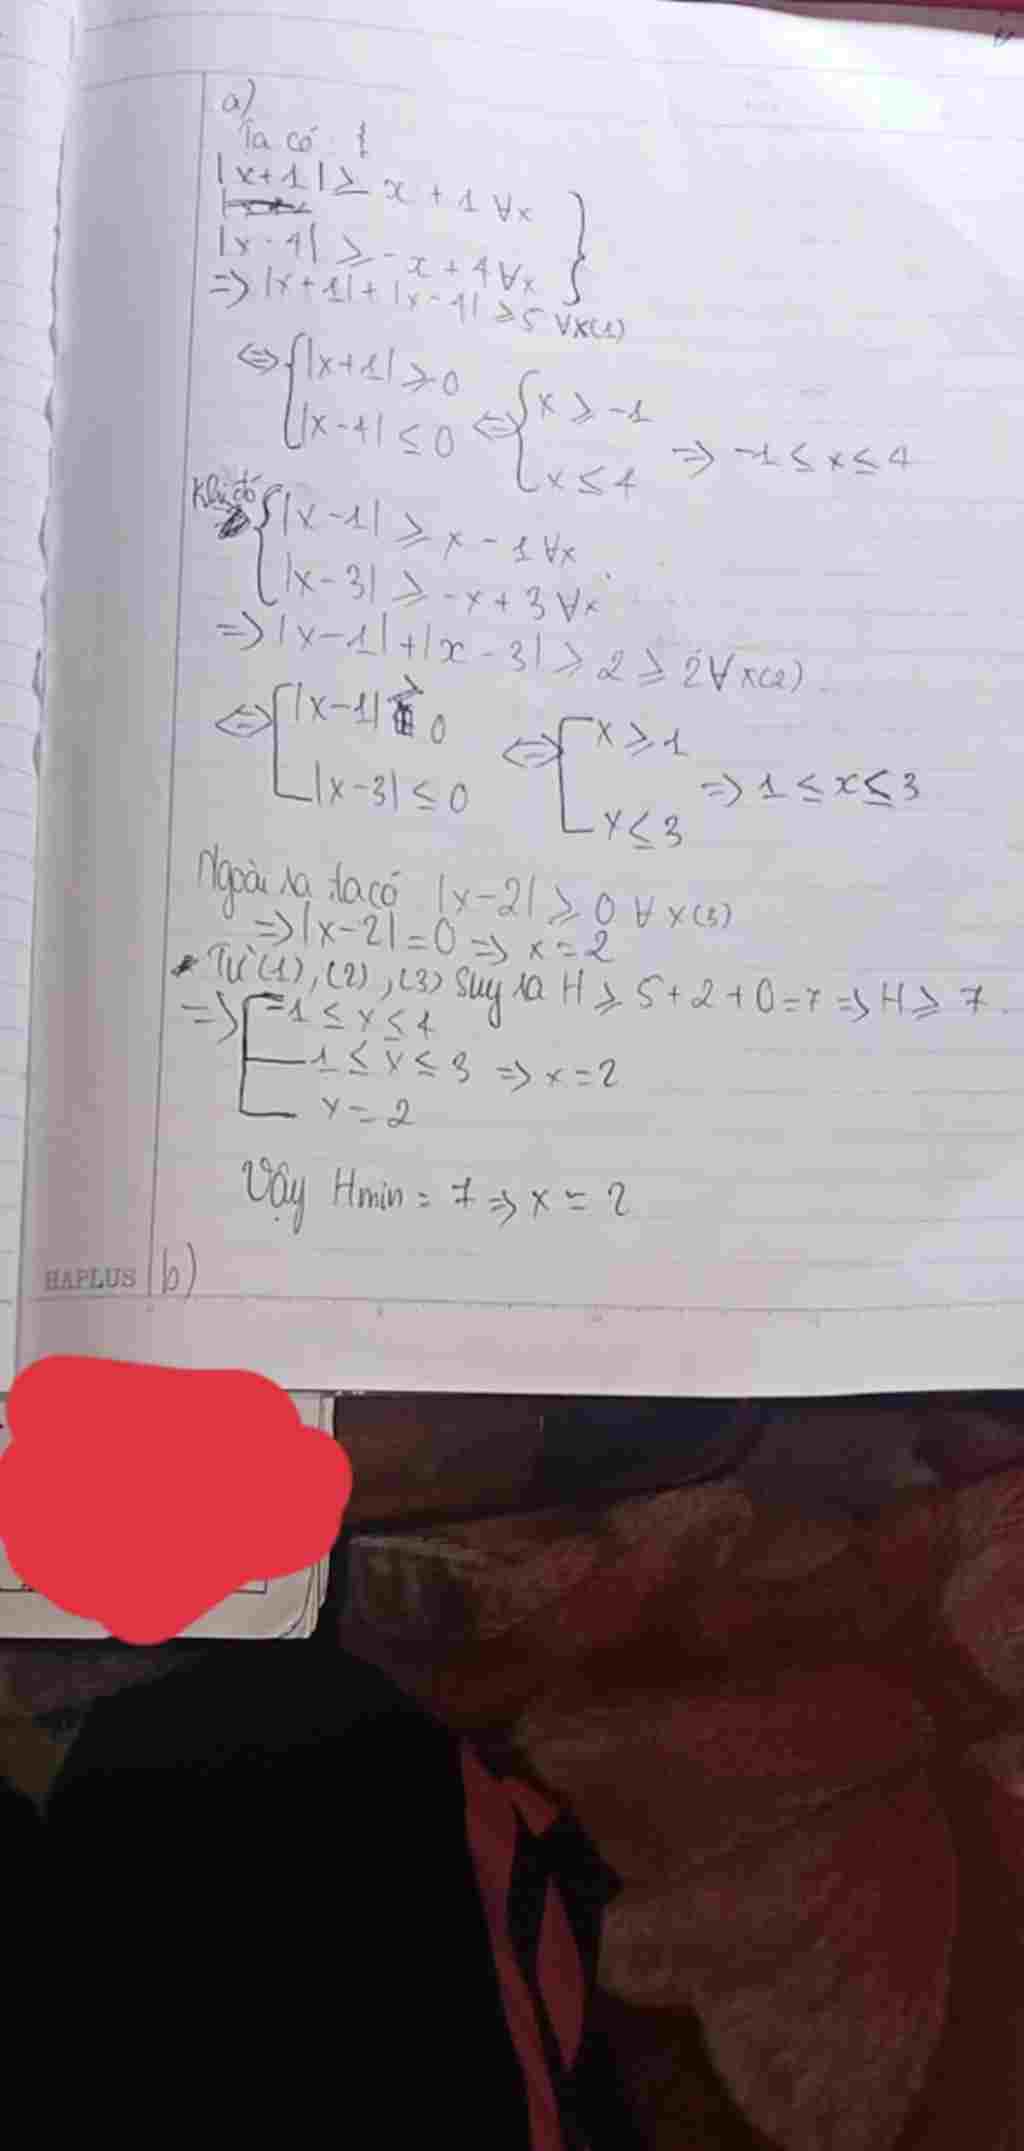 a)
Ta có {
|x+1| ≥ x + 1 ∀x
|x-4| ≥ -x + 4 ∀x }
=> |x+1| + |x-4| ≥ 5 ∀x(1)
<=> { |x+1| ≥ 0 <=> { x ≥ -1
|x-4| ≤ 0 x ≤ 4 => -1 ≤ x ≤ 4
Khi đó { |x-1| ≥ x - 1 ∀x
|x-3| ≥ -x + 3 ∀x
=> |x-1| + |x-3| ≥ 2 ≥ 2 ∀x(2)
<=> [ |x-1| ≥ 0 <=> [ x ≥ 1
|x-3| ≤ 0 x ≤ 3 => 1 ≤ x ≤ 3
Ngoài ra ta có |x-2| ≥ 0 ∀x(3)
=> |x-2| = 0 => x = 2
Từ (1), (2), (3) suy ra H ≥ 5+2+0=7 => H ≥ 7
=> [ -1 ≤ x ≤ 4
1 ≤ x ≤ 3 => x = 2
x = 2
Vậy Hmin = 7 => x = 2
HAPLUS b)